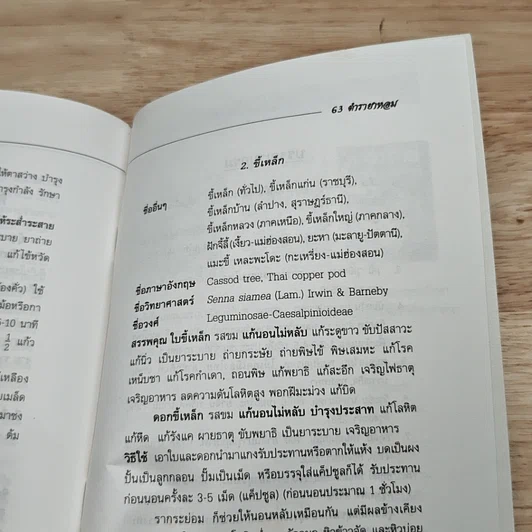 ให้ตาสว่าง บำรุง
รุงกำลัง รักษา
ห้ระส่ำระสาย
บาย ยาถ่าย
แก้ไข้หวัด
องคัว) ใช้
ม้อหรือกา
5-10 นาที
1/2 แก้ว
เหลือง
ยเมล็ด
มาชง
ต้ม
63 ตำรายาหอม
2. ขี้เหล็ก
ชื่ออื่นๆ ขี้เหล็ก (ทั่วไป), ขี้เหล็กแก่น (ราชบุรี),
ขี้เหล็กบ้าน (ลำปาง, สุราษฎร์ธานี),
ขี้เหล็กหลวง (ภาคเหนือ), ขี้เหล็กใหญ่ (ภาคกลาง),
ผักจี้ลี้ (เงี้ยว-แม่ฮ่องสอน), ยะหา (มะลายู-ปัตตานี),
แมะขี้ เหละพะโดะ (กะเหรี่ยง-แม่ฮ่องสอน)
ชื่อภาษาอังกฤษ Cassod tree, Thai copper pod
ชื่อวิทยาศาสตร์ Senna siamea (Lam.) Irwin & Barneby
ชื่อวงศ์ Leguminosae-Caesalpinioideae
สรรพคุณ ใบขี้เหล็ก รสขม แก้นอนไม่หลับ แก้ระดูขาว ขับปัสสาวะ
แก้นิ่ว เป็นยาระบาย ถ่ายกระษัย ถ่ายพิษไข้ พิษเสมหะ แก้โรค
เหน็บชา แก้โรคกำเดา, ถอนพิษ แก้พยาธิ แก้สะอึก เจริญไฟธาตุ
เจริญอาหาร ลดความดันโลหิตสูง พอกฝีมะม่วง แก้บิด
ดอกขี้เหล็ก รสขม แก้นอนไม่หลับ บำรุงประสาท แก้โลหิต
แก้หืด แก้รังแค ผายธาตุ ขับพยาธิ เป็นยาระบาย เจริญอาหาร
วิธีใช้ เอาใบและดอกนำมาแกงรับประทานหรือตากให้แห้ง บดเป็นผง
ปั้นเป็นลูกกลอน ปั๊มเป็นเม็ด หรือบรรจุใส่แค็ปซูลก็ได้ รับประทาน
ก่อนนอนครั้งละ 3-5 เม็ด (แค็ปซูล) (ก่อนนอนประมาณ 1 ชั่วโมง)
รากระย่อม ก็ช่วยให้นอนหลับเหมือนกัน แต่มีผลข้างเคียง